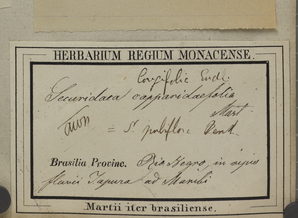 HERBARIUM REGIUM MONACENSE.
longifolia Endl.
Securidaca capparidaefolia
Mart
non = S. Benth.
Brasilia Provinc. Rio Negro, in ripis
fluvii Japura ad
Martii iter brasiliense.